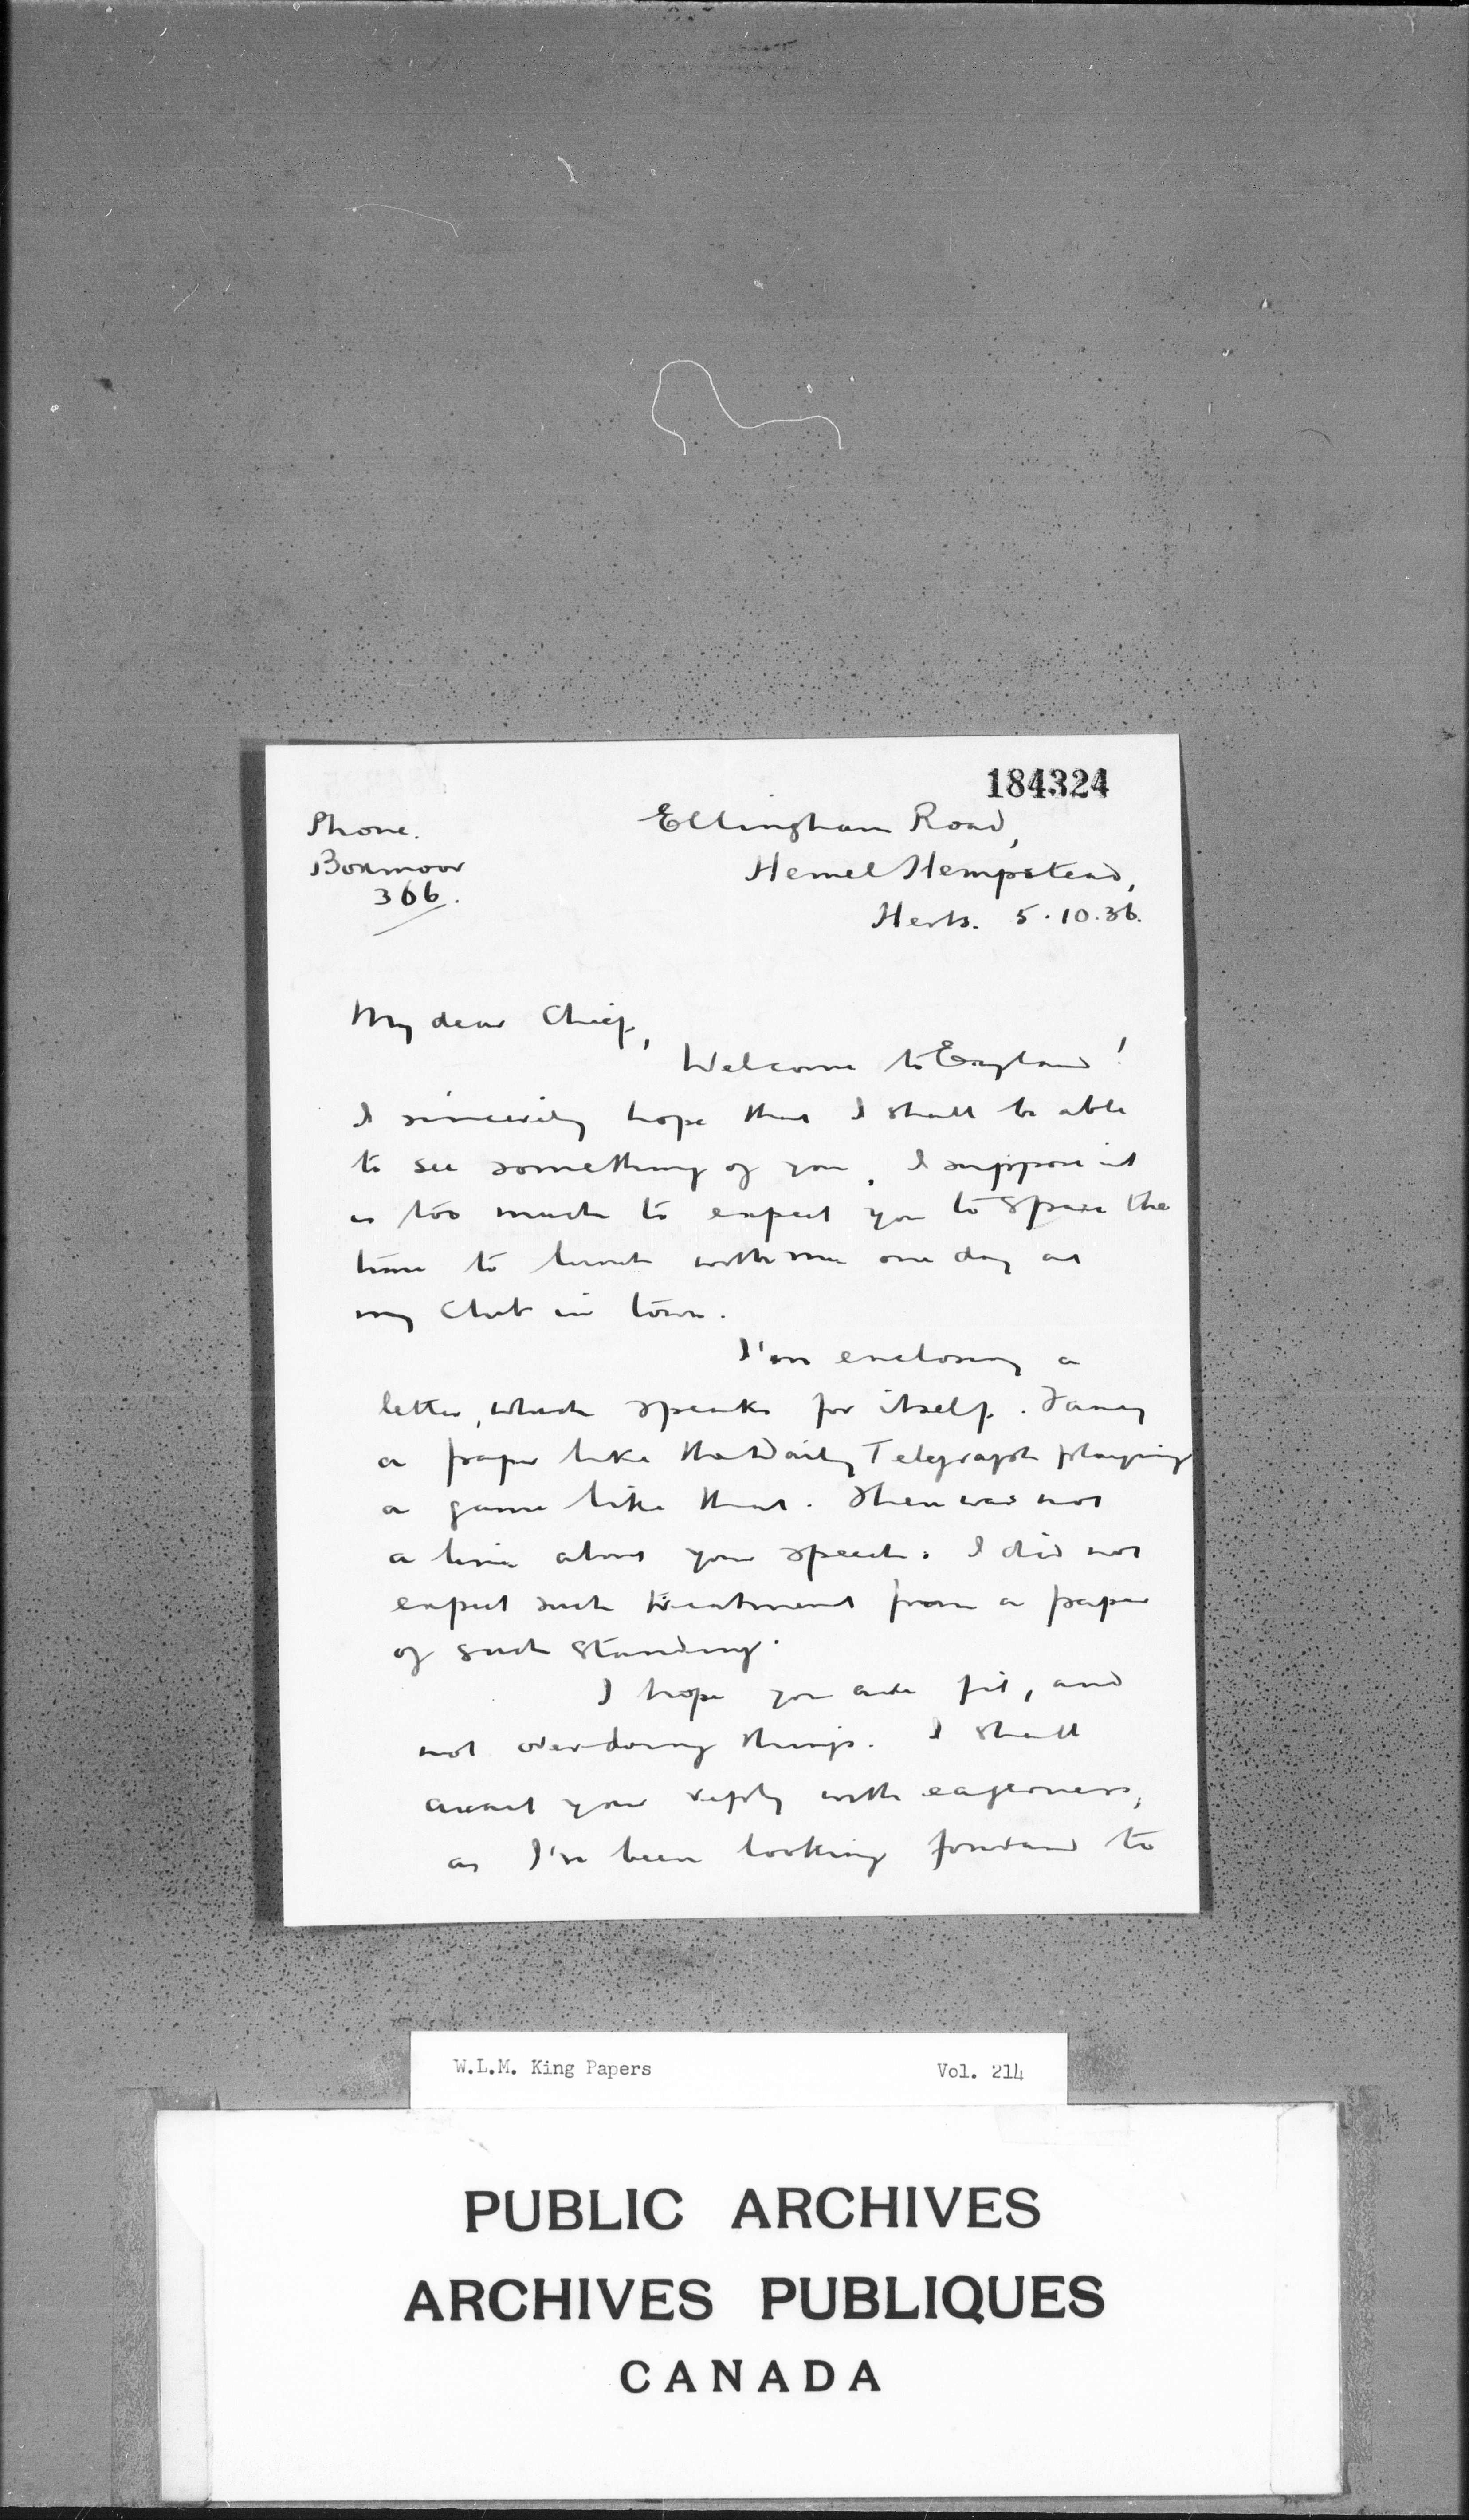 184324
Phone.
Boxmoor
366.
Ellingham Road,
Hemel Hempstead,
Herts. 5.10.36.
My dear Chief,
Welcome to England!
I sincerely hope that I shall be able
to see something of you. I suppose it
is too much to expect you to spare the
time to lunch with me one day at
my Club in town.
I'm enclosing a
letter, which speaks for itself. Fancy
a paper like the Daily Telegraph playing
a game like that. There was not
a line about your speech. I did not
expect such treatment from a paper
of such standing.
I hope you are fit, and
not over-doing things. I shall
await your reply with eagerness,
as I've been looking forward to
W.L.M. King Papers Vol. 214
PUBLIC ARCHIVES
ARCHIVES PUBLIQUES
CANADA